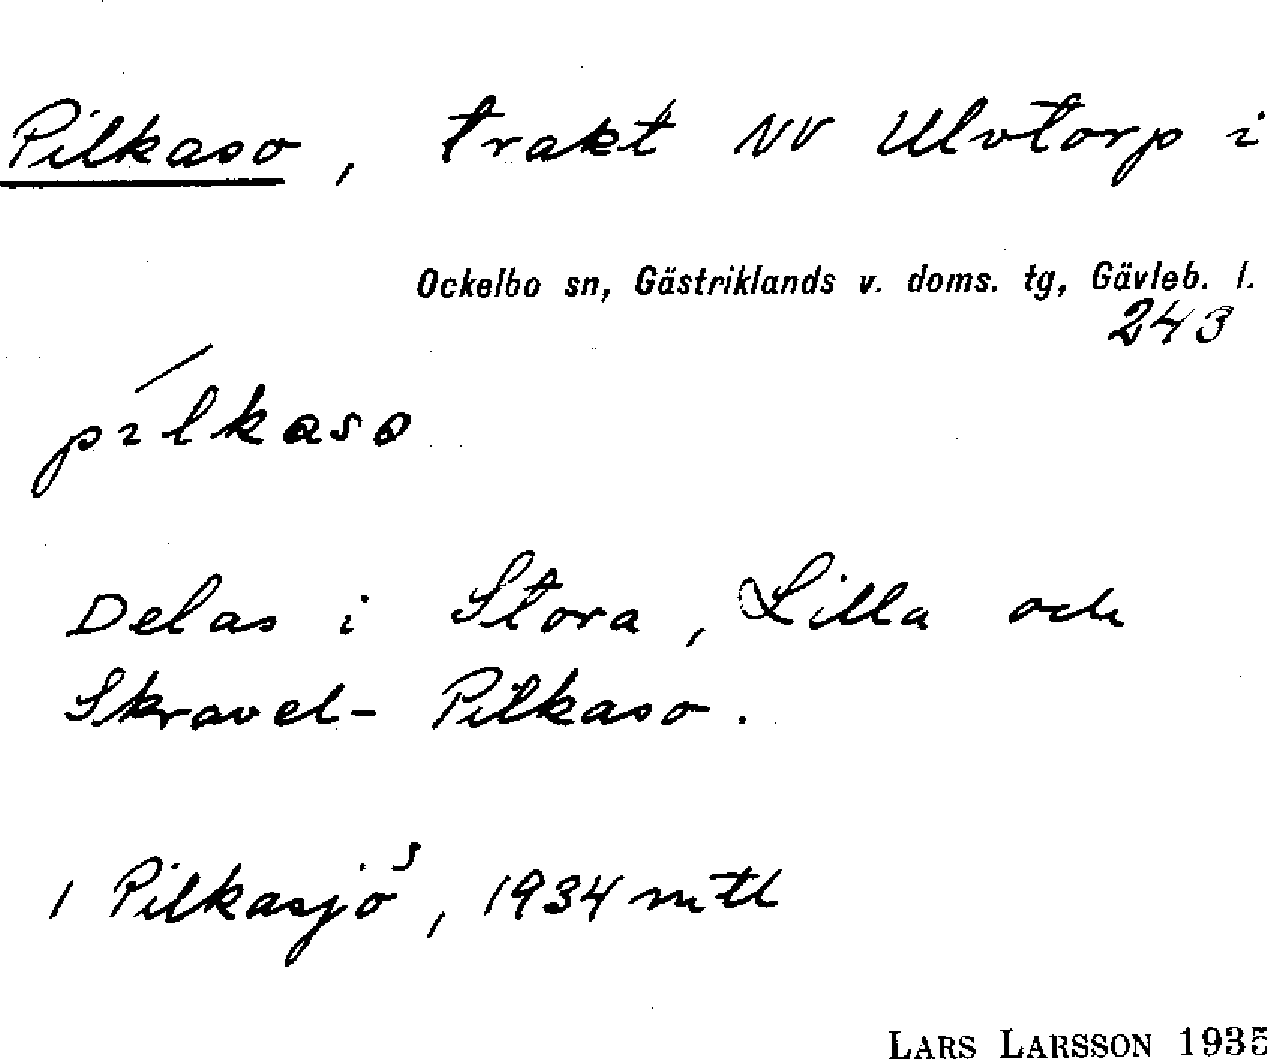 Pilkaso, trakt NV Ulvtorp i
Ockelbo sn, Gästriklands v. doms. tg, Gävleb. l.
243
pílkaso
Delas i Stora, Lilla och
Skravel- Pilkaso.
1 Pilkasjö, 1934 mtl
LARS LARSSON 1935